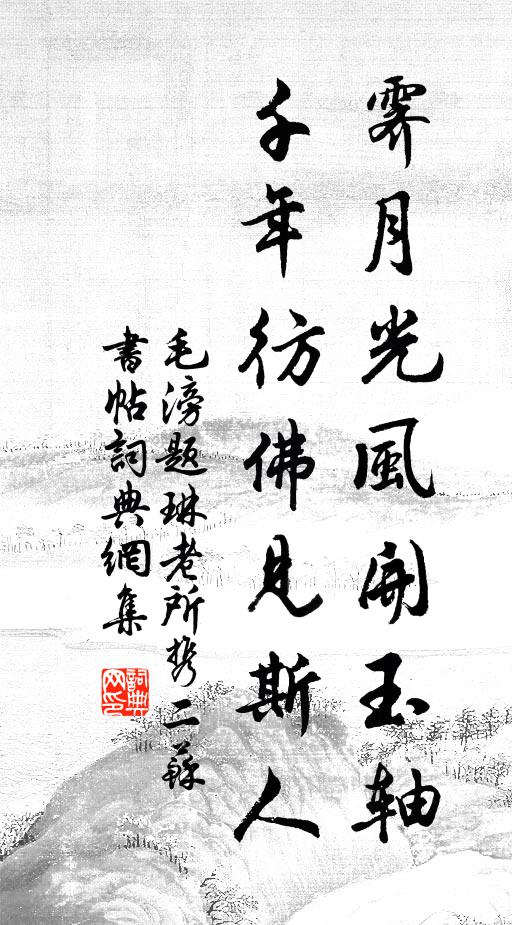 霽月光風開玉軸
千年彷佛見斯人
毛滂題琳老所携二蘇
書帖詞典網集
詞典网印